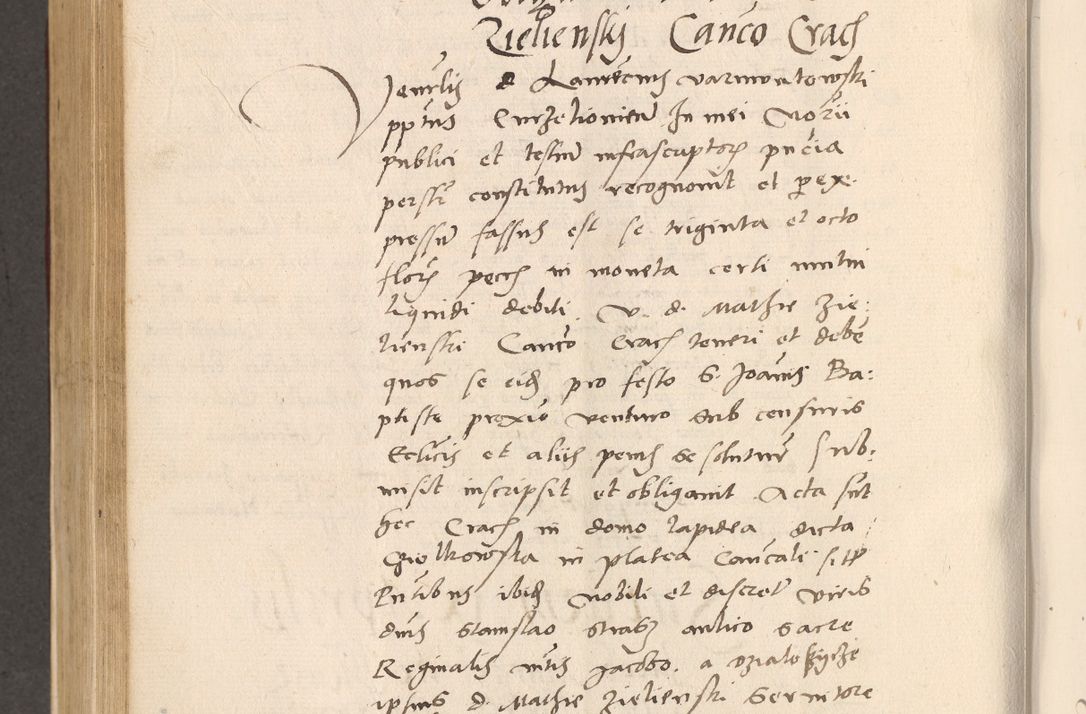 Zielienskj Canco Crach
Venrlis d Laurecius varmuntowskj
pptus Curzelionien In mei Norii
publici et testiu infrascriptor pncia
persl constitutus recognouit et p ex
pressu fassus est se triginta et octo
flor pecch in moneta certi mutui
liquidi debiti. V. d. Mathie Zie:
lienski Canco Crach teneri et debe
quos se eid pro festo S. Joanis Ba:
ptiste proxio venturo sub censuris
Eclicis et aliis penis se soluture sub:
misit inscripsit et obligauit Acta sut
hec Crach in domo lapidea dicta
Gielkowska in platea Cancali sitt
Pntibus ibid Nobili et discret viris
dnis Stanislao Strasz aulico Sacre
Reginalis mtis Jacobo. a
iptius d. Mathie Zielienski Seruitore